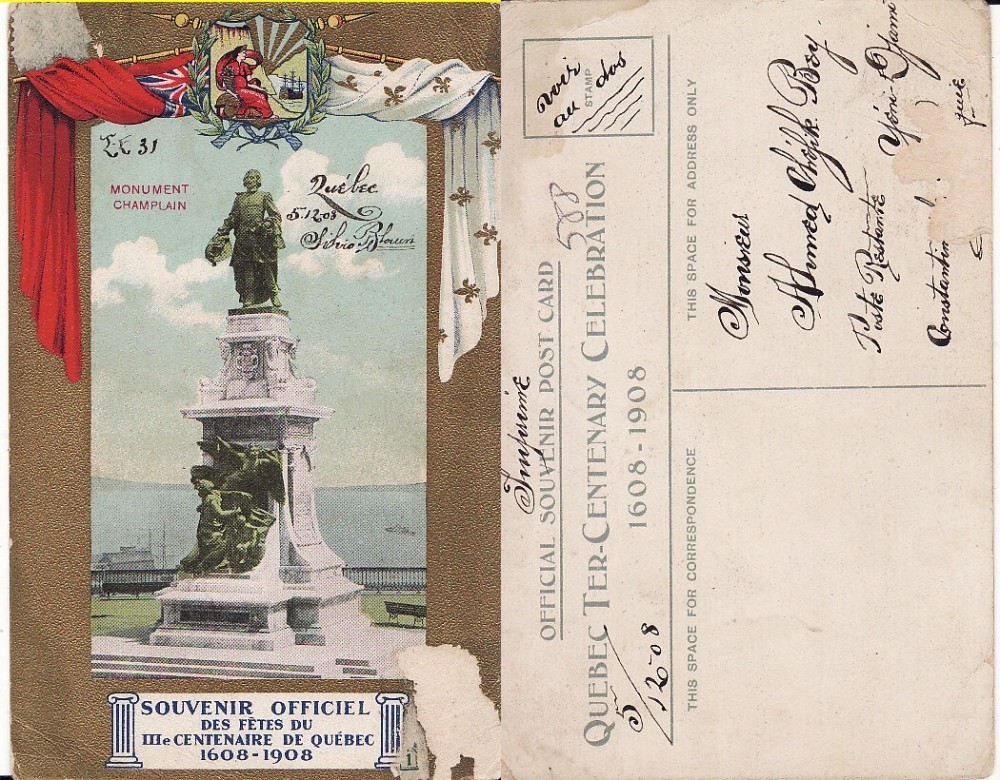 31
MONUMENT
CHAMPLAIN
Québec
5.12.08
SOUVENIR OFFICIEL
DES FÊTES DU
IIIe CENTENAIRE DE QUÉBEC
1608-1908
1
voir
au dos
STAMP
Imprimé
OFFICIAL SOUVENIR POST CARD
588
QUEBEC TER-CENTENARY CELEBRATION
1608-1908
5/12-08
THIS SPACE FOR ADDRESS ONLY
Monsieur
Ahmed Bey
Poste Restante
Constantin
THIS SPACE FOR CORRESPONDENCE